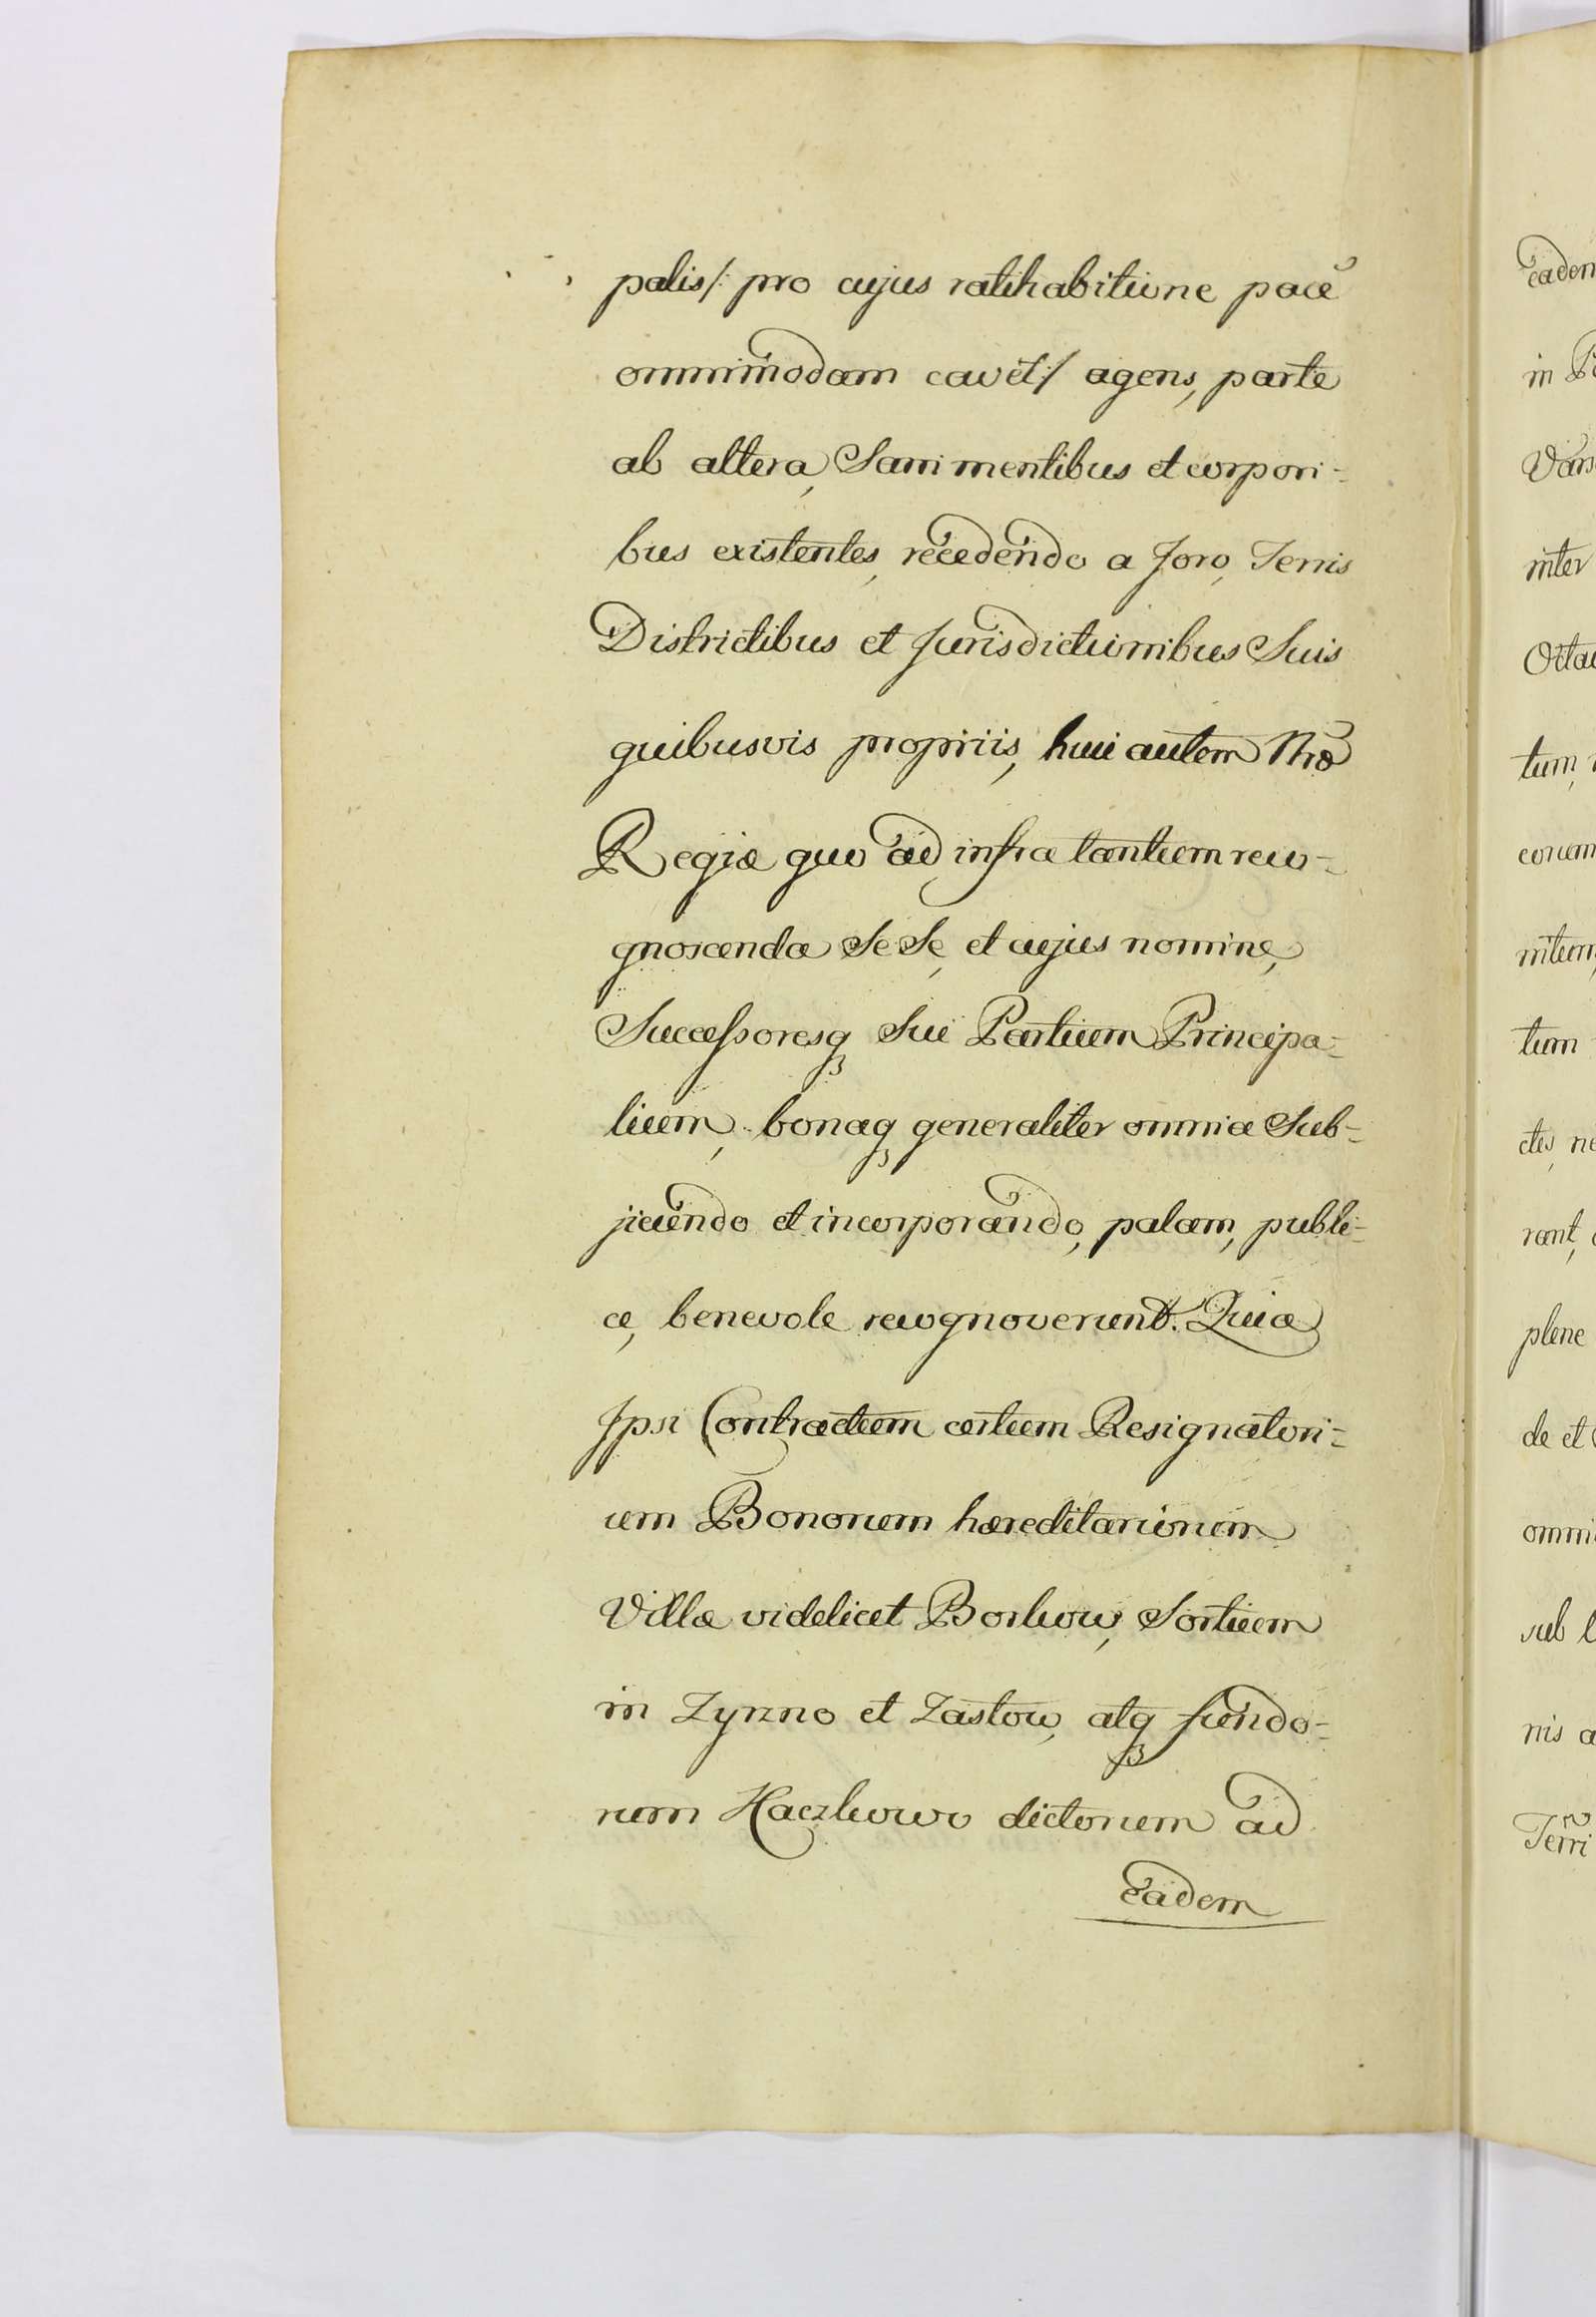 palis /: pro cujus ratihabitione pace
omnimodam cavet :/ agens, parte
ab altera, Sani mentibus et corpori-
bus existentes, recedendo a Foro, Terris
Districtibus et Jurisdictionibus Suis
quibusvis propriis, huic autem Nrae
Regiae quo ad infra tantum reco-
gnoscenda Se Se, et cujus nomine,
Successoresq Sui Partium Principa-
lium, bonaq generaliter omnia Sub-
jiciendo et incorporando, palam, publi-
ce, benevole recognoverunt. Quia
Ipsi Contractum certum Resignatori-
um Bonorum haereditariorum
Villae videlicet Borkow, Sortium
in Zyrzno et Zastow, atq fundo-
rum Haczkowo dictorum ad
Eadem
Eadem
in
inter
tum,
tum
rant,
plene
de et
sub
nis a
Terri